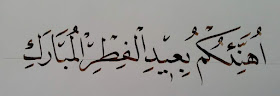 اُهَنِّئُكُمْ بِعِيْدِ الْفِطْرِ الْمُبَارَكِ